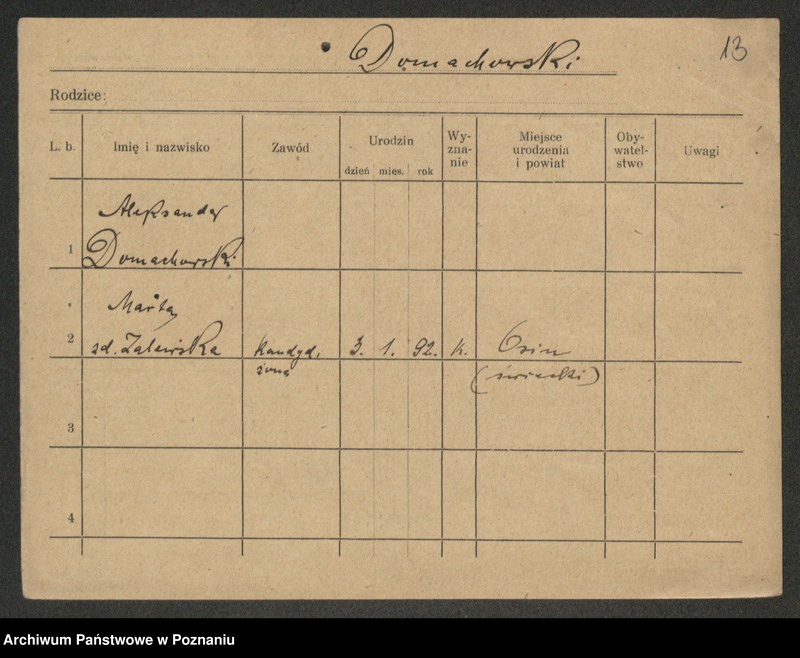 Domachowski
13
Rodzice:
L. b. Imię i nazwisko Zawód Urodzin Wy-zna-nie Miejsce urodzenia i powiat Oby-watel-stwo Uwagi
dzień mies. rok
Aleksander
1 Domachowski
Marta
2 zd. Zalewska kandyd. 3. 1. 92. k. Osin
żona (świecki)
3
4
Archiwum Państwowe w Poznaniu